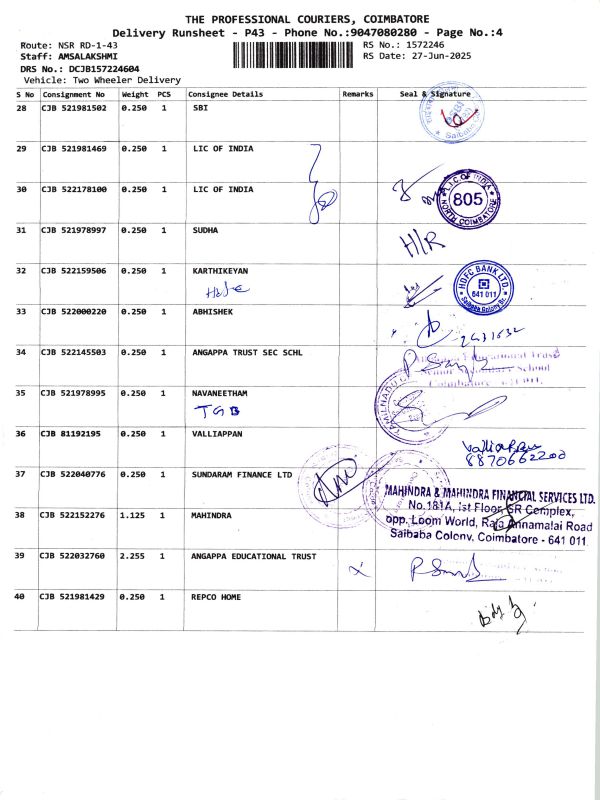 THE PROFESSIONAL COURIERS, COIMBATORE
Delivery Runsheet - P43 - Phone No.:9047080280 - Page No.:4
Route: NSR RD-1-43
RS No.: 1572246
Staff: AMSALAKSHMI
RS Date: 27-Jun-2025
DRS No.: DCJB157224604
Vehicle: Two Wheeler Delivery
S No Consignment No Weight PCS Consignee Details Remarks Seal & Signature
28 CJB 521981502 0.250 1 SBI
SBI
Saibaba
29 CJB 521981469 0.250 1 LIC OF INDIA
30 CJB 522178100 0.250 1 LIC OF INDIA
L.I.C OF INDIA
805
NORTH COIMBATORE
31 CJB 521978997 0.250 1 SUDHA
H/R
32 CJB 522159506 0.250 1 KARTHIKEYAN
HDFC BANK LTD.
641 011
Saibaba Colony Br.
33 CJB 522000220 0.250 1 ABHISHEK
34 CJB 522145503 0.250 1 ANGAPPA TRUST SEC SCHL
Educational Trust
School
35 CJB 521978995 0.250 1 NAVANEETHAM
TGB
TAMILNADU
36 CJB 81192195 0.250 1 VALLIAPPAN
Valliappan
8870662200
37 CJB 522040776 0.250 1 SUNDARAM FINANCE LTD
38 CJB 522152276 1.125 1 MAHINDRA
MAHINDRA & MAHINDRA FINANCIAL SERVICES LTD.
No.181A, 1st Floor, SR Complex,
opp. Loom World, Raja Annamalai Road
Saibaba Colony, Coimbatore - 641 011
39 CJB 522032760 2.255 1 ANGAPPA EDUCATIONAL TRUST
40 CJB 521981429 0.250 1 REPCO HOME